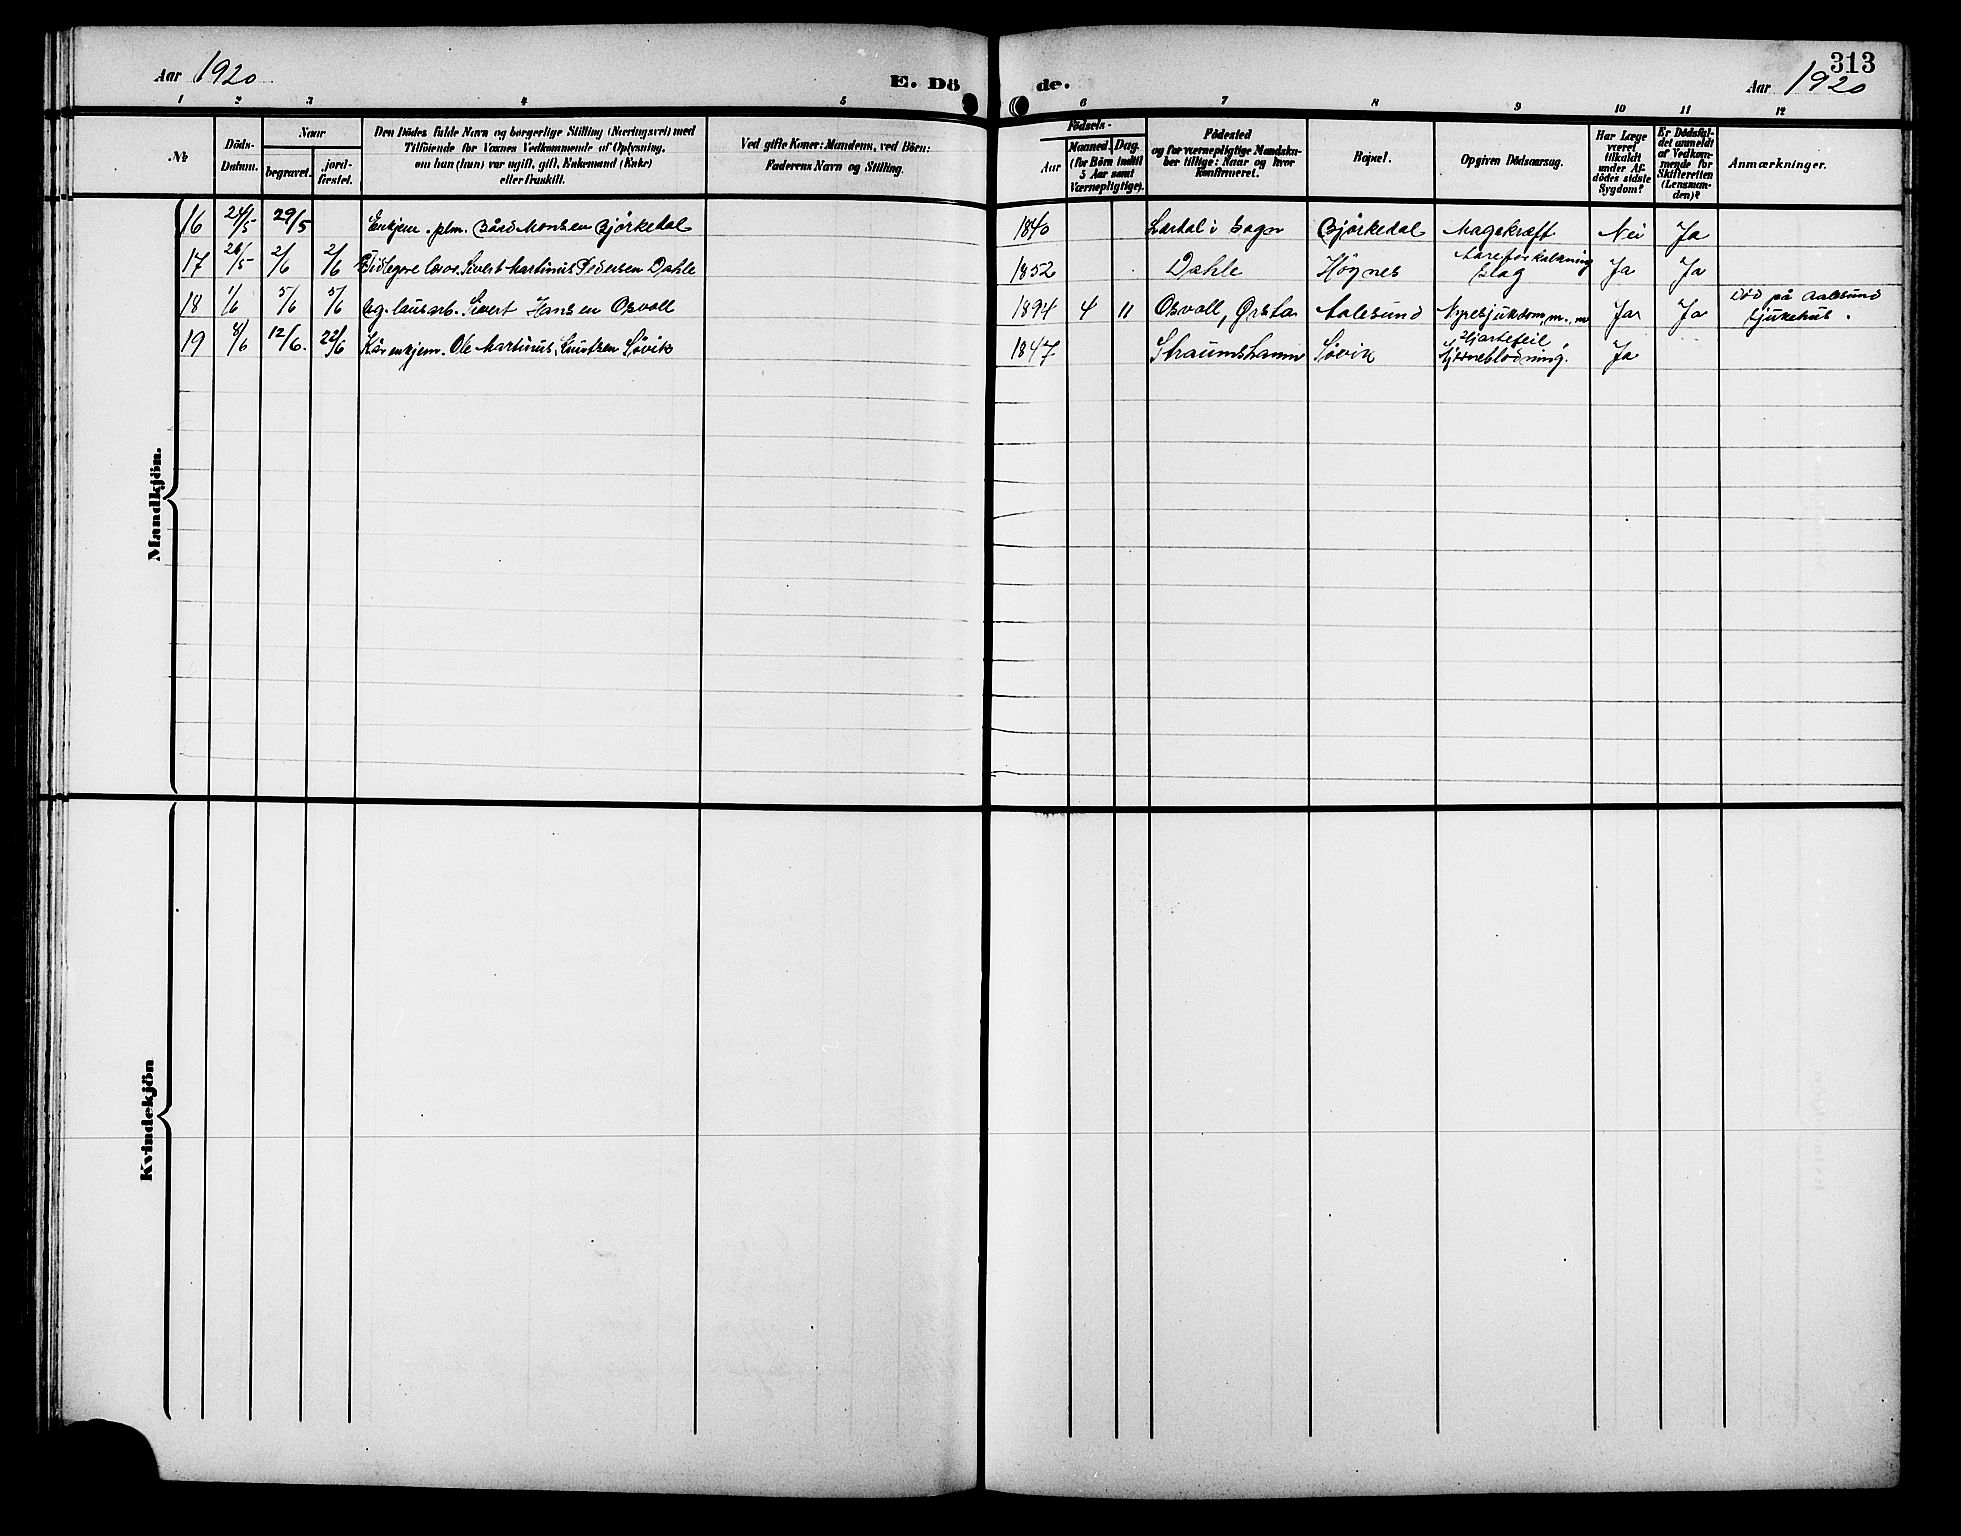 313
Aar 1920 E. Dö de. Aar 1920
1 2 3 4 5 6 7 8 9 10 11 12
№
Döds-
Datum.
Naar
begravet.
jord-
fæstet.
Den Dödes fulde Navn og borgerlige Stilling (Næringsvei) med
Tilföiende for Voxnes Vedkommende af Oplysning,
om han (hun) var ugift, gift, Enkemand (Enke)
eller fraskilt.
Ved gifte Koner: Mandens, ved Börn:
Faderens Navn og Stilling.
Födsels-
Aar
Maaned. Dag.
(for Börn indtil
5 Aar samt
Værnepligtige).
Födested
og for værnepligtige Mandska-
ber tillige: Naar og hvor
Konfirmeret.
Bopæl.
Opgiven Dödsaarsag.
Har Læge
været
tilkaldt
under Af-
dödes sidste
Sygdom?
Er Dödsfal-
det anmeldt
af Vedkom-
mende for
Skifteretten
(Lensman-
den)?
Anmærkninger.
Mandkjön.
16 24/5 29/5 Enkjem. plm. Bård Monsen Bjørkedal 1840 Lærdal i Sogn Bjørkedal Magekræft Nei Ja
17 2/6 2/6 Sivert Martinus Pedersen Dahle 1852 Dahle Høgnes Aareforkalkning slag Ja Ja
18 1/6 5/6 5/6 ug. lausarb. Sivert Hansen Osvoll 1894 4 11 Osvoll, Ørsta Aalesund Nyresjukdom, m. m Ja Ja Død på Aalesund sjukehus.
19 8/6 12/6. Kårenkjem. Ole Martinus Søvik 1847 Straumshamn Søvik Hjartefeil, hjerneblødning. Ja
Kvindekjön